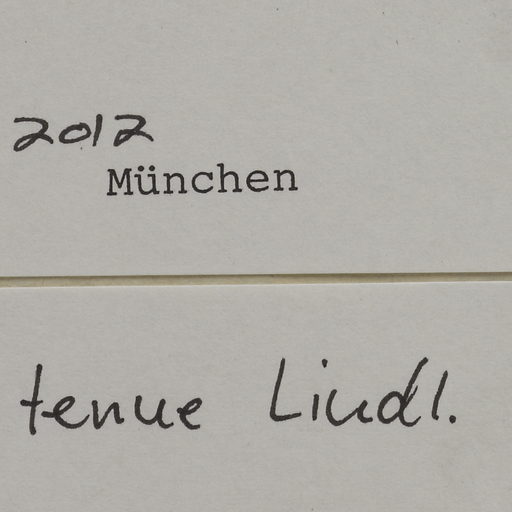 2012
München
tenue Lindl.